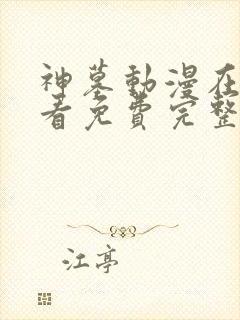 神墓動漫在
看免費完整
江亭